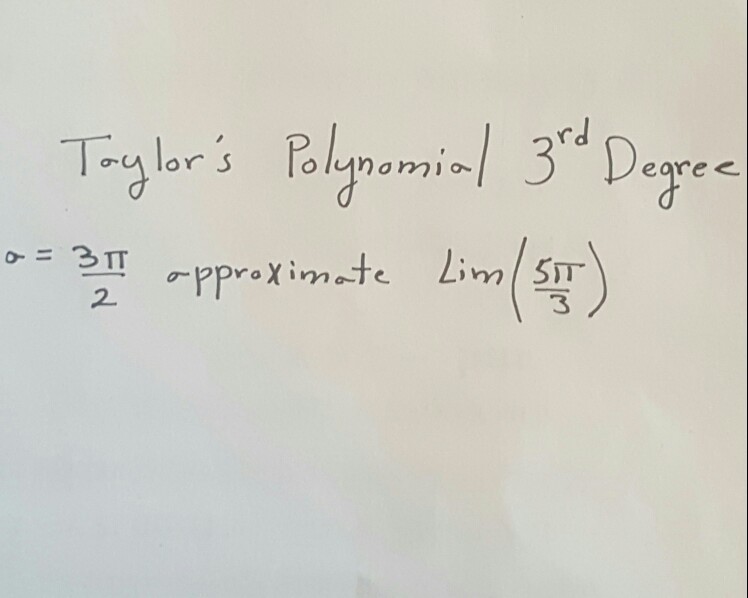 Taylor's Polynomial 3rd Degree
a = 3π/2 approximate Lim(5π/3)